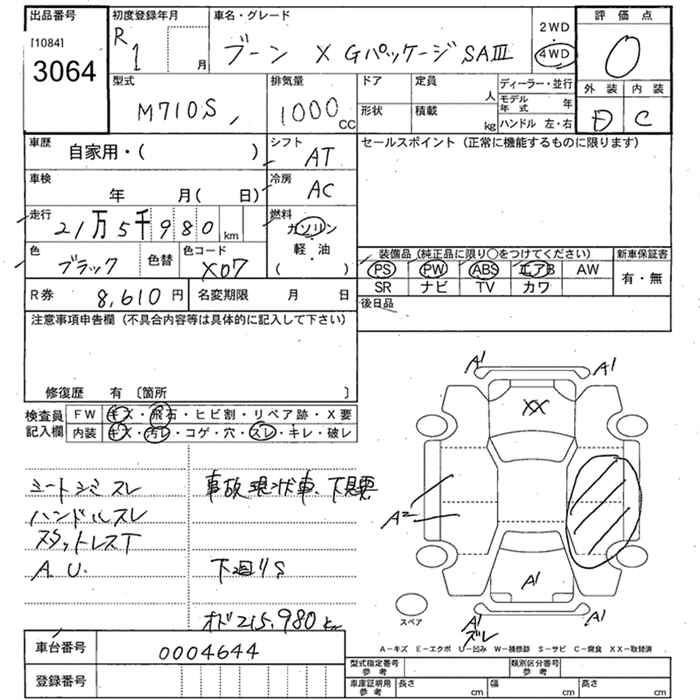 出品番号 初度登録年月 車名・グレード 2WD 評価点
[1084] R 1 月 ブーン X Gパッケージ SAⅢ 4WD 0
3064
型式 排気量 ドア 定員 人 ディーラー・並行 外装 内装
M710S 1000 CC 形状 積載 kg モデル年式 年 D C
ハンドル 左・右
車歴 自家用・( ) シフト AT セールスポイント (正常に機能するものに限ります)
車検 年 月( 日) 冷房 AC
走行 21万5千980 km 燃料 ガソリン
軽・油
( )
色 ブラック 色替 色コード X07
装備品 (純正品に限り〇をつけてください) 新車保証書
PS PW ABS エアB AW 有・無
SR ナビ TV カワ
R券 8,610円 名変期限 月 日 後日品
注意事項申告欄 (不具合内容等は具体的に記入して下さい)
修復歴 有 〔箇所 〕
検査員 FW キズ・飛石・ヒビ割・リペア跡・X要
記入欄 内装 キズ・汚レ・コゲ・穴・スレ・キレ・破レ
シートシミ スレ 事故現状車、下見要
ハンドルスレ
スタットレスT
A.U. 下廻りS
オド 215,980 km
A1 A1
XX
A2
A1
A1 ズレ A1
スペア
A－キズ E－エクボ U－凹み W－補修跡 S－サビ C－腐食 XX－取替済
車台番号 0004644
登録番号
型式指定番号 参考 類別区分番号 参考
車庫証明用 参考 長さ cm 幅 cm 高さ cm